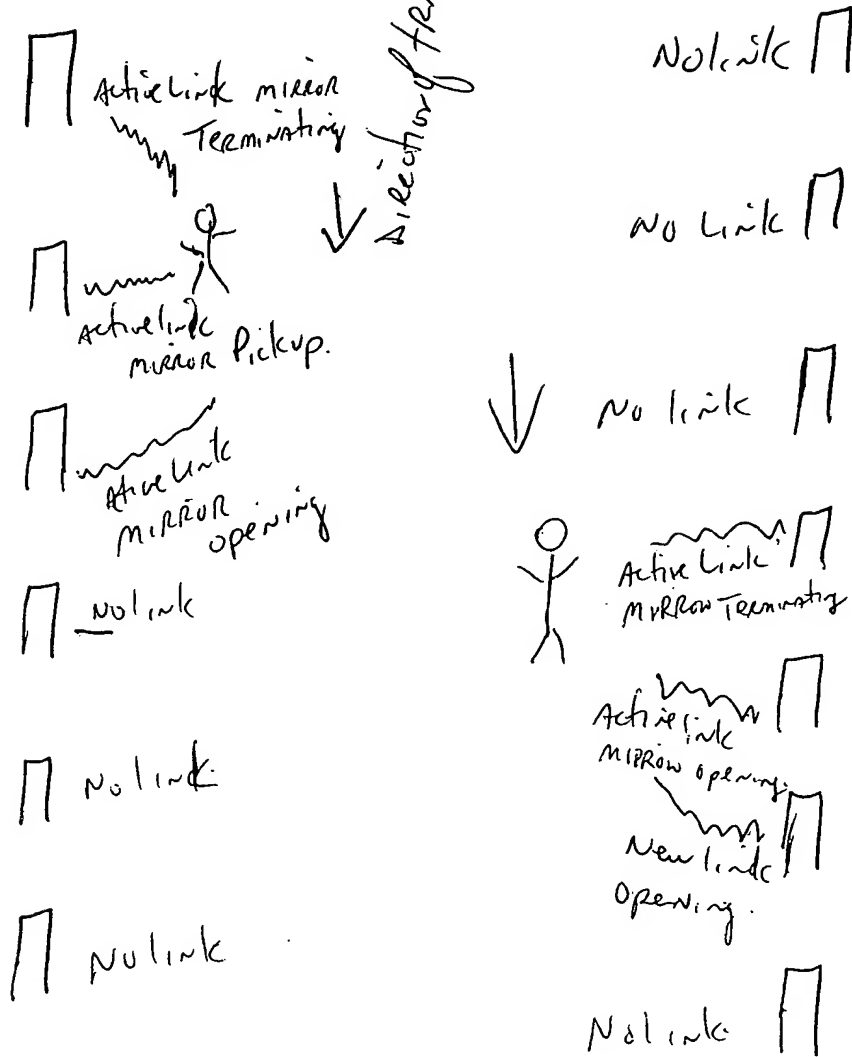 Active Link MIRROR
Terminating
Direction of tr
Active link
MIRROR Pickup.
Ative Link
MIRROR
opening
No link
No link
No link
No link
No Link
No link
Active Link
MIRROW Terminating
Active link
MIRROW opening.
New link
opening.
No link